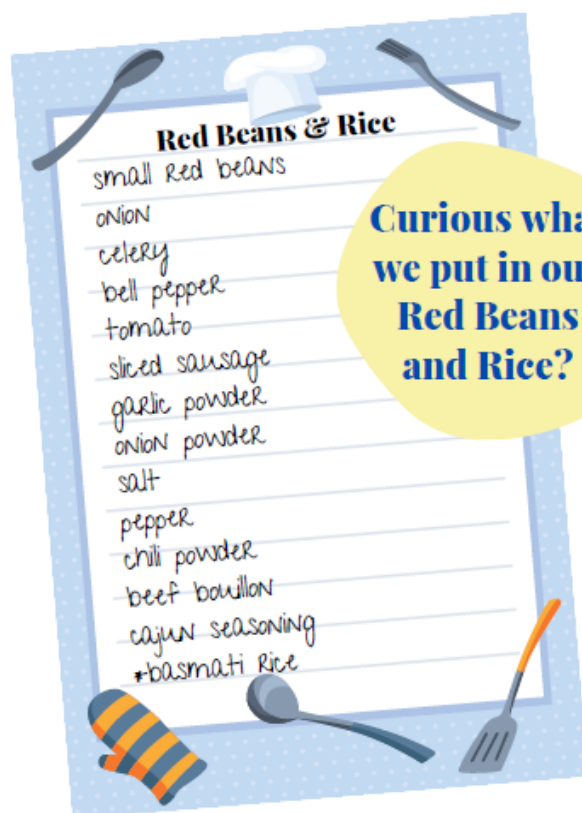 Red Beans & Rice
small Red beans
onion
celery
bell pepper
tomato
sliced sausage
garlic powder
onion powder
salt
pepper
chili powder
beef bouillon
cajun seasoning
*basmati Rice
Curious wha
we put in ou
Red Beans
and Rice?